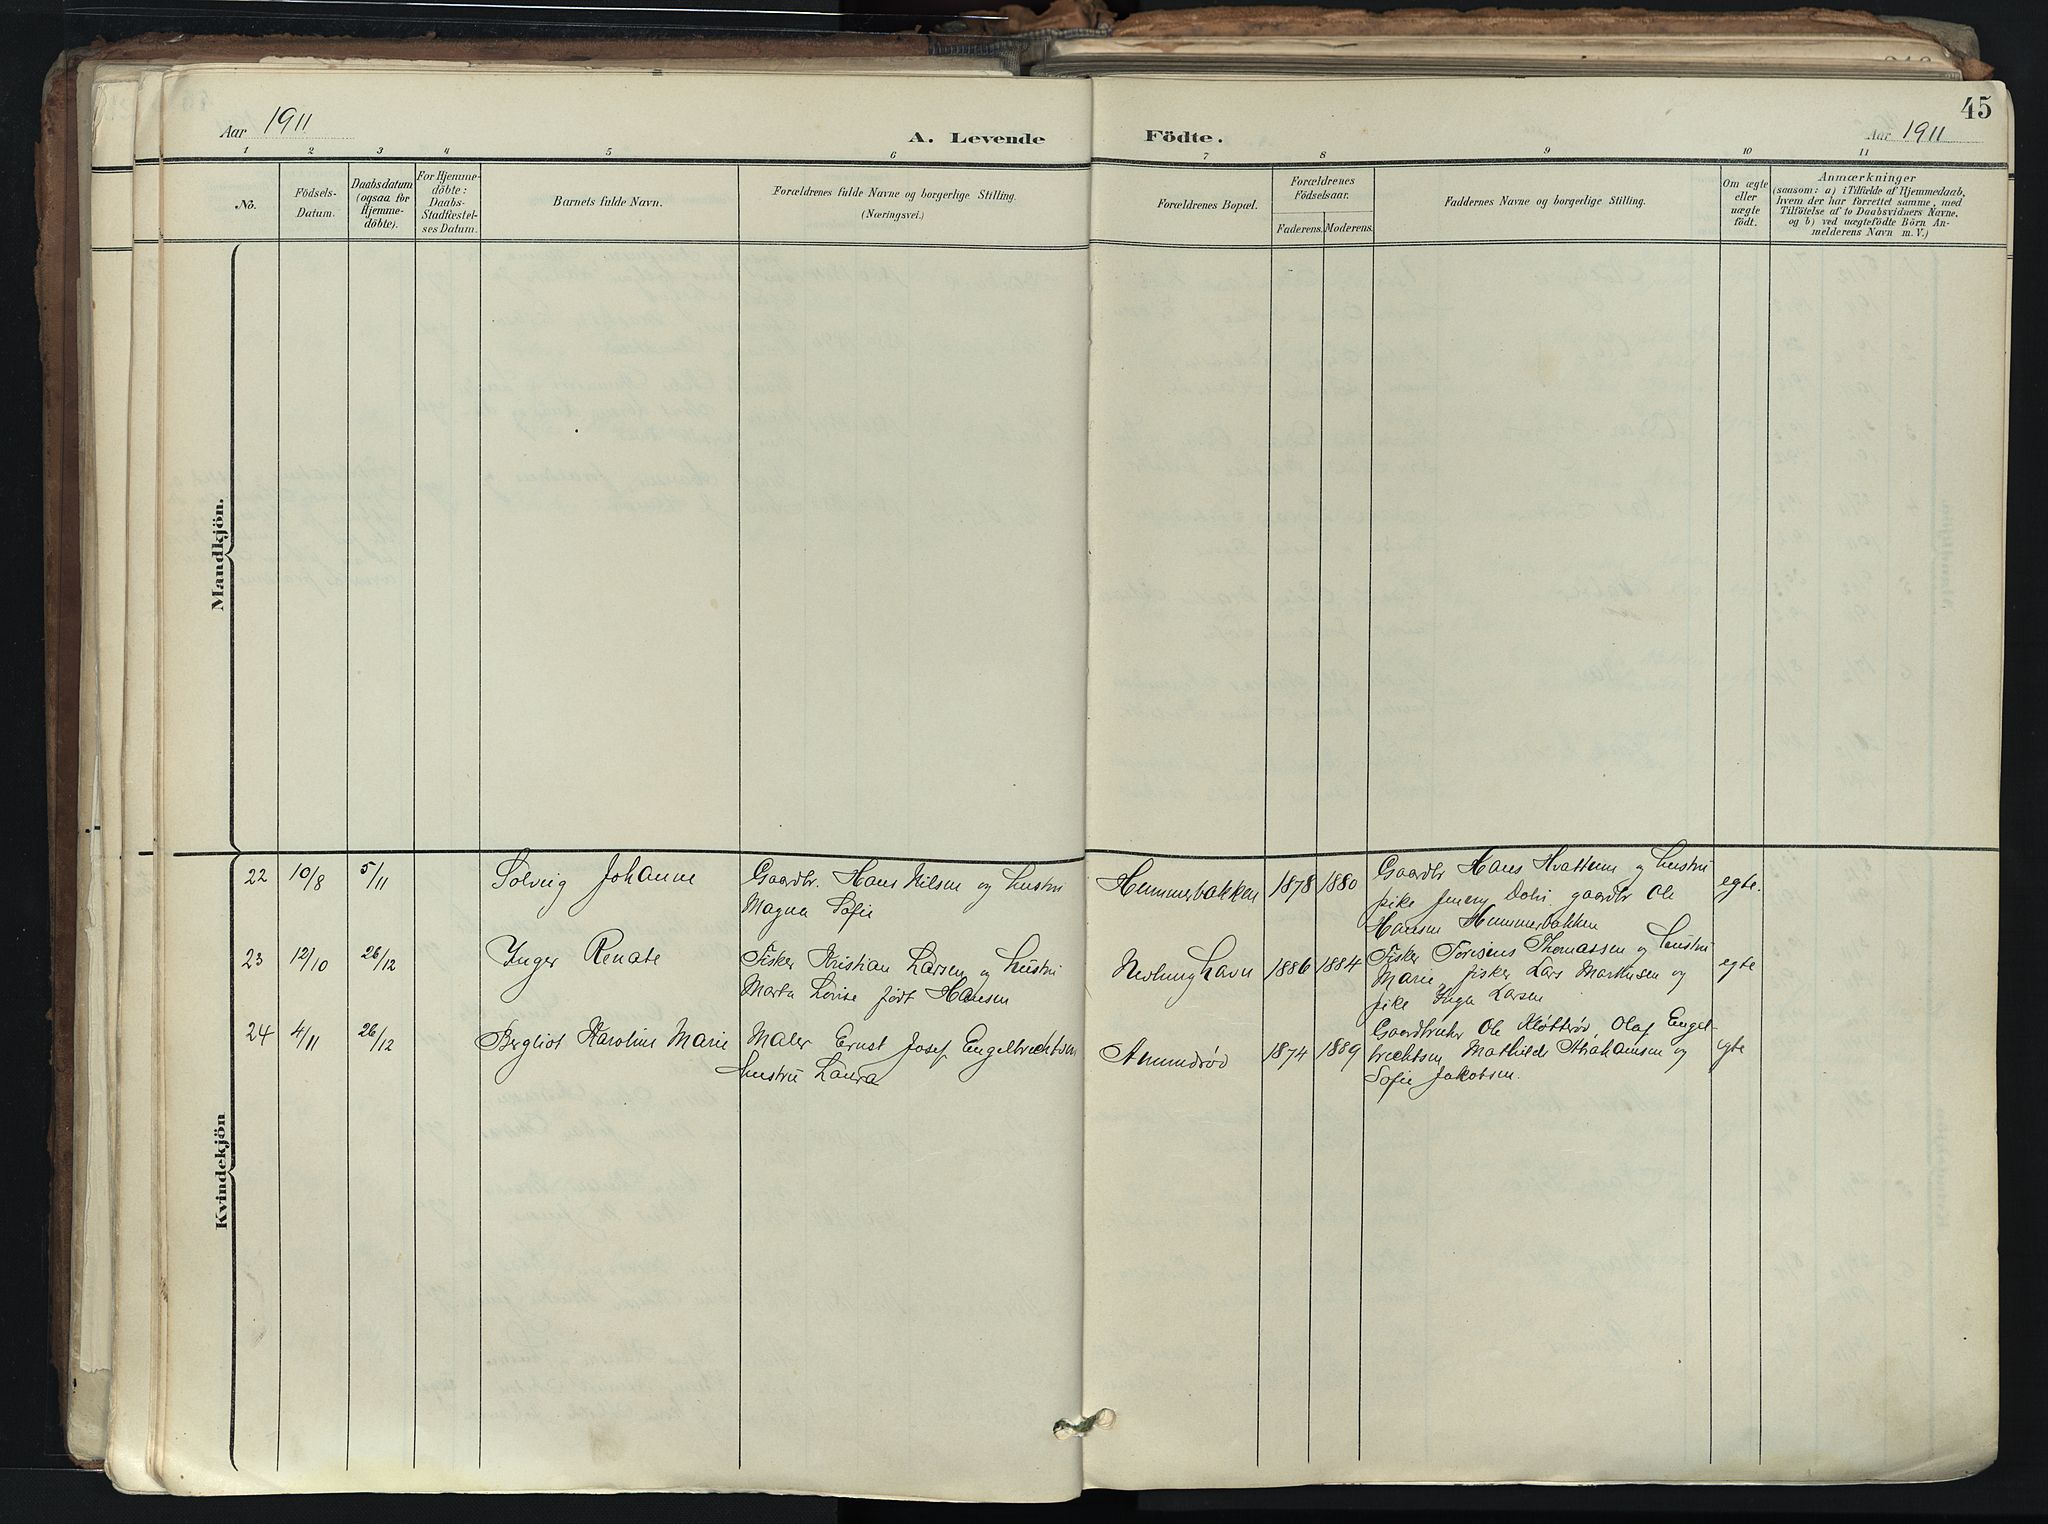 45
Aar 1911
A. Levende
Födte.
Aar 1911
1 2 3 4 5 6 7 8 9 10 11
No.
Födsels-
Datum.
Daabsdatum
(ogsaa for
Hjemme-
döbte).
For Hjemme-
döbte:
Daabs-
Stadfæstel-
ses Datum.
Barnets fulde Navn.
Forældrenes fulde Navne og borgerlige Stilling.
(Næringsvei.)
Forældrenes Bopæl.
Forældrenes
Födselsaar.
Faderens. Moderens.
Faddernes Navne og borgerlige Stilling.
Om ægte
eller
uægte
födt.
Anmærkninger
(saasom: a) i Tilfælde af Hjemmedaab,
hvem der har forrettet samme, med
Tilföielse af to Daabsvidners Navne,
og b) ved uægtefödte Börn An-
melderens Navn m. V.)
Mandkjön.
Kvindekjön
22 10/8 5/11 Solveig Johanne Gaardbr. Hans Nilsen og hustru
Magna Sofie
Hummerbakken 1878 1880
Gaardbr Hans Hvattum og hustru
pike Jenny Dolvi gaardbr Ole
Hansen Hummerbakken
egte.
23 12/10 26/12 Inger Renate Fisker Kristian Larsen og hustru
Marta Lovise født Hansen
Nevlunghavn 1886 1884
Fisker Torsius Thomassen og hustru
Marie, fisker Lars Marthisen og
pike Inga Larsen
egte
24 4/11 26/12 Bergliot Karoline Marie Maler Ernst Josef Engelbrechtsen
hustru Laura
Amundrød 1874 1889
Gaardbruker Ole Kløtterød, Olaf Engel-
brechtsen, Mathilde Abrahamsen og
Sofie Jakobsen.
egte